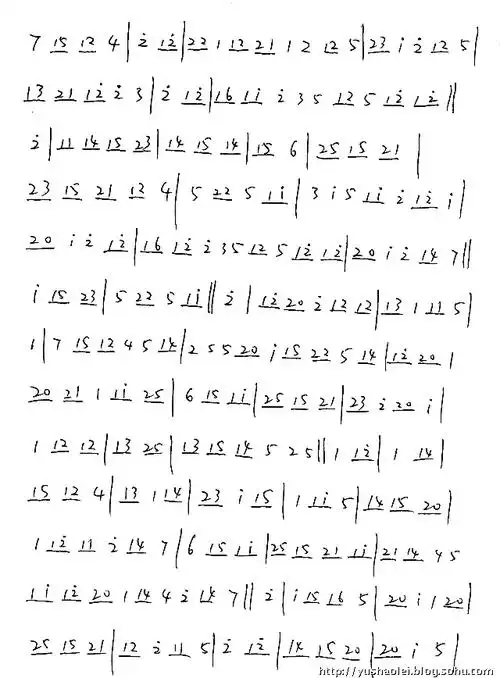 7 15 12 4 | 2̇ 12̇ | 22 1 12 21 1 2 12 5 | 23 i 2̇ 12 5 |
13 21 12̇ 2̇ 3 | 2̇ 12̇ | 16 1i 2̇ 3 5 12 5 12̇ 12̇ ||
2̇ | 11 14 15 23 | 14 15 14 | 15 6 | 25 15 21 |
23 15 21 12 4 | 5 22 5 1i | 3 i 5 1i 2̇ 12̇ i |
20 i 2̇ 12̇ | 16 12̇ 2̇ 3 5 12 5 12̇ 12̇ | 20 i 2̇ 14 7 ||
i 15 23 | 5 22 5 1i || 2̇ | 12̇ 20 2̇ 12 12 | 13 1 11 5 |
1 | 7 15 12 4 5 14 | 2 5 5 20 i 15 22 5 14 | 12̇ 20 1
20 21 1 1i 25 | 6 15 1i | 25 15 21 | 23 2̇ 20 i |
1 12 12 | 13 25 | 13 15 14 5 2 5 || 1 12̇ | 1 14 |
15 12 4 | 13 1 14 | 23 i 15 | 1 1i 5 | 14 15 20 |
1 12̇ 11 2̇ 14 7 | 6 15 1i | 25 15 21 1i | 21 14 4 5
1i 12̇ 20 1 14 4 2̇ 14 7 || 2̇ | i 15 16 5 | 20 i 1 20 |
25 15 21 | 12 2̇ 11 5 | 2̇ 12̇ | 14 15 20 | 20 i 5 |
http://yushaolei.blog.sohu.com